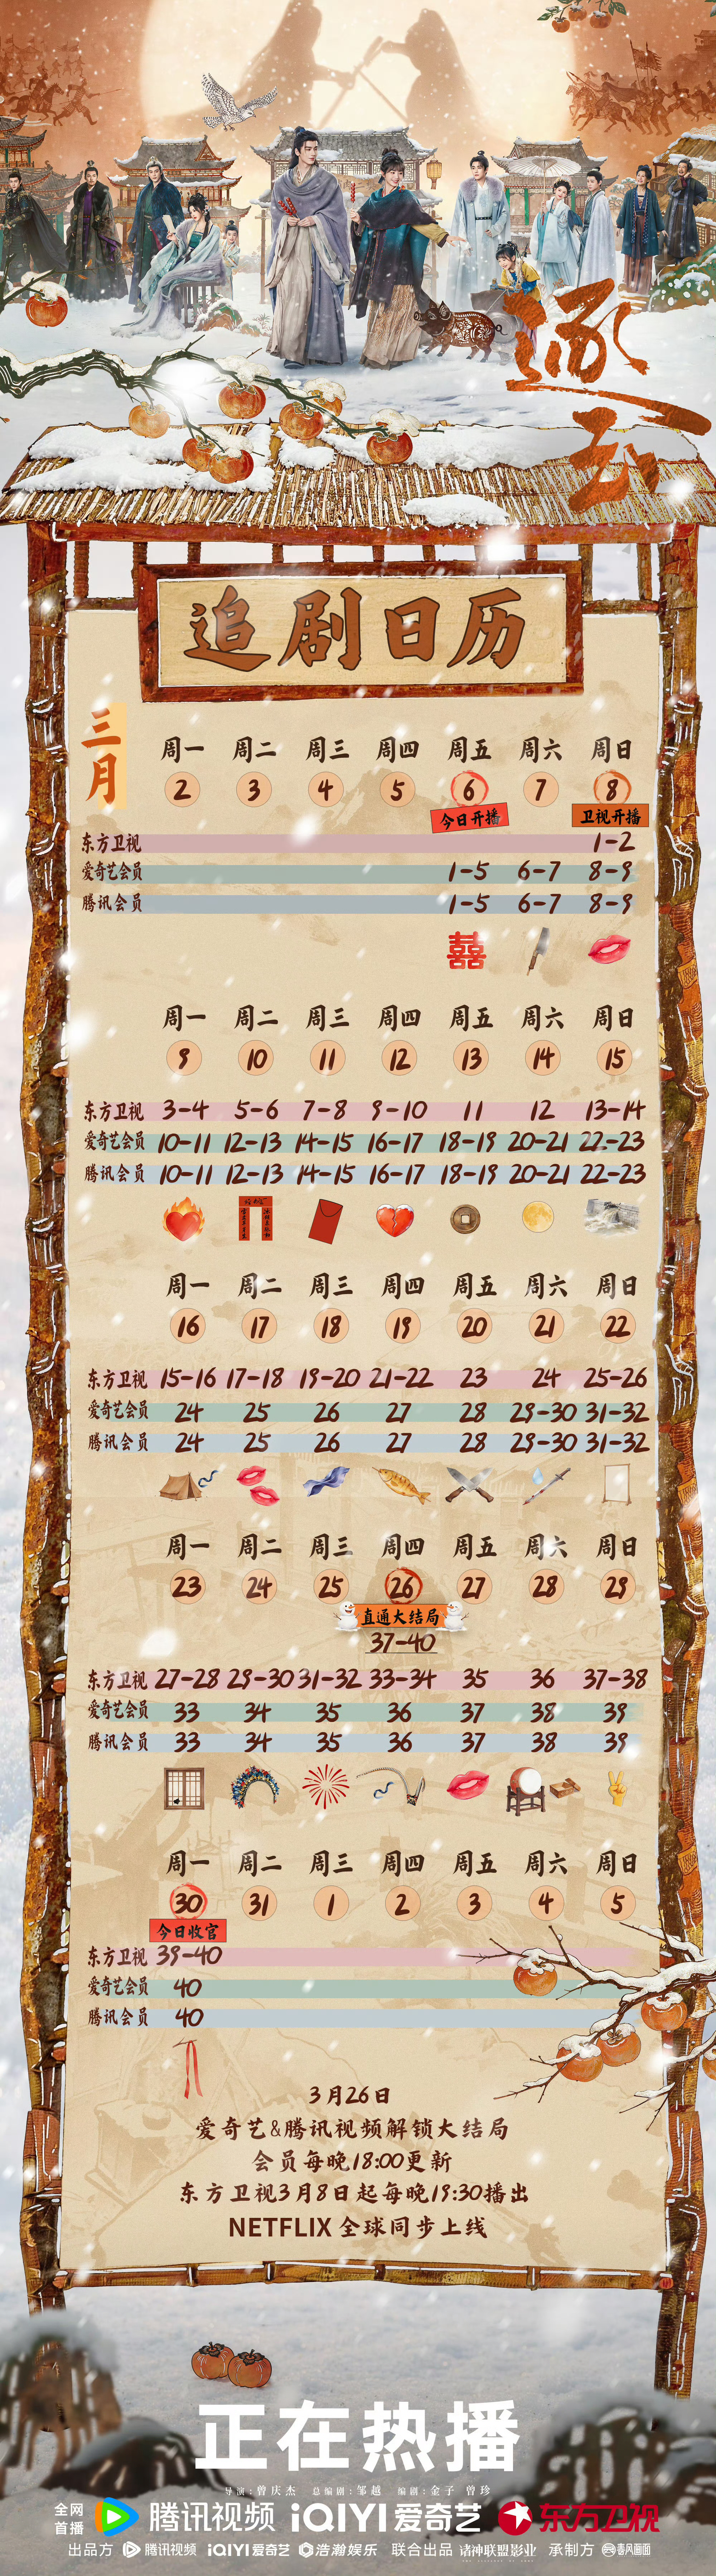 逐玉
追剧日历
三月
周一 周二 周三 周四 周五 周六 周日
2 3 4 5 6 7 8
今日开播 卫视开播
东方卫视 1-2
爱奇艺会员 1-5 6-7 8-9
腾讯会员 1-5 6-7 8-9
囍
周一 周二 周三 周四 周五 周六 周日
9 10 11 12 13 14 15
东方卫视 3-4 5-6 7-8 9-10 11 12 13-14
爱奇艺会员 10-11 12-13 14-15 16-17 18-19 20-21 22-23
腾讯会员 10-11 12-13 14-15 16-17 18-19 20-21 22-23
周一 周二 周三 周四 周五 周六 周日
16 17 18 19 20 21 22
东方卫视 15-16 17-18 19-20 21-22 23 24 25-26
爱奇艺会员 24 25 26 27 28 29-30 31-32
腾讯会员 24 25 26 27 28 29-30 31-32
周一 周二 周三 周四 周五 周六 周日
23 24 25 26 27 28 29
直通大结局
37-40
东方卫视 27-28 29-30 31-32 33-34 35 36 37-38
爱奇艺会员 33 34 35 36 37 38 39
腾讯会员 33 34 35 36 37 38 39
周一 周二 周三 周四 周五 周六 周日
30 31 1 2 3 4 5
今日收官
东方卫视 39-40
爱奇艺会员 40
腾讯会员 40
3月26日
爱奇艺&腾讯视频解锁大结局
会员每晚18:00更新
东方卫视3月8日起每晚19:30播出
NETFLIX 全球同步上线
正在热播
导演:曾庆杰 总编剧:邹越 编剧:金子 曾珍
全网首播 腾讯视频 iQIYI 爱奇艺 东方卫视
出品方 腾讯视频 iQIYI 爱奇艺 浩瀚娱乐 联合出品 诸神联盟影业 承制方 春风画面